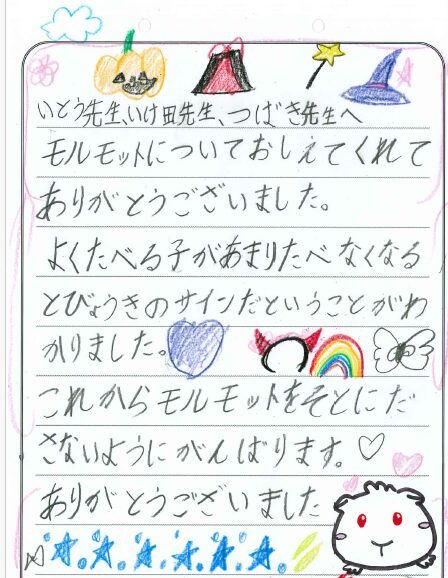 いとう先生、いけ田先生、つばき先生へ
モルモットについておしえてくれて
ありがとうございました。
よくたべる子があまりたべなくなる
とびょうきのサインだということがわ
かりました。
これからモルモットをそとにだ
さないようにがんばります。♡
ありがとうございました